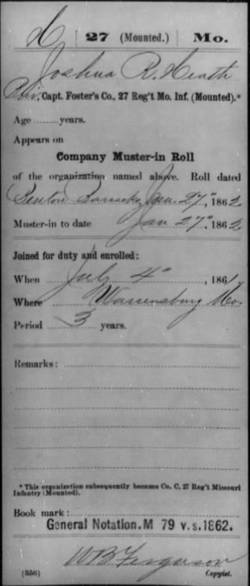 H | 27 (Mounted.) | Mo.
Joshua R. Heath
Pvt., Capt. Foster's Co., 27 Reg't Mo. Inf. (Mounted).*
Age ........ years.
Appears on
Company Muster-in Roll
of the organization named above. Roll dated
Benton Barracks, Jan. 27", 1862
Muster-in to date Jan 27", 1862
Joined for duty and enrolled:
When July 4", 1861
Where Warrensburg Mo.
Period 3 years.
Remarks:
* This organization subsequently became Co. C, 27 Reg't Missouri
Infantry (Mounted).
Book mark:
General Notation. M 79 v.s. 1862.
W B Ferguson
(356) Copyist.